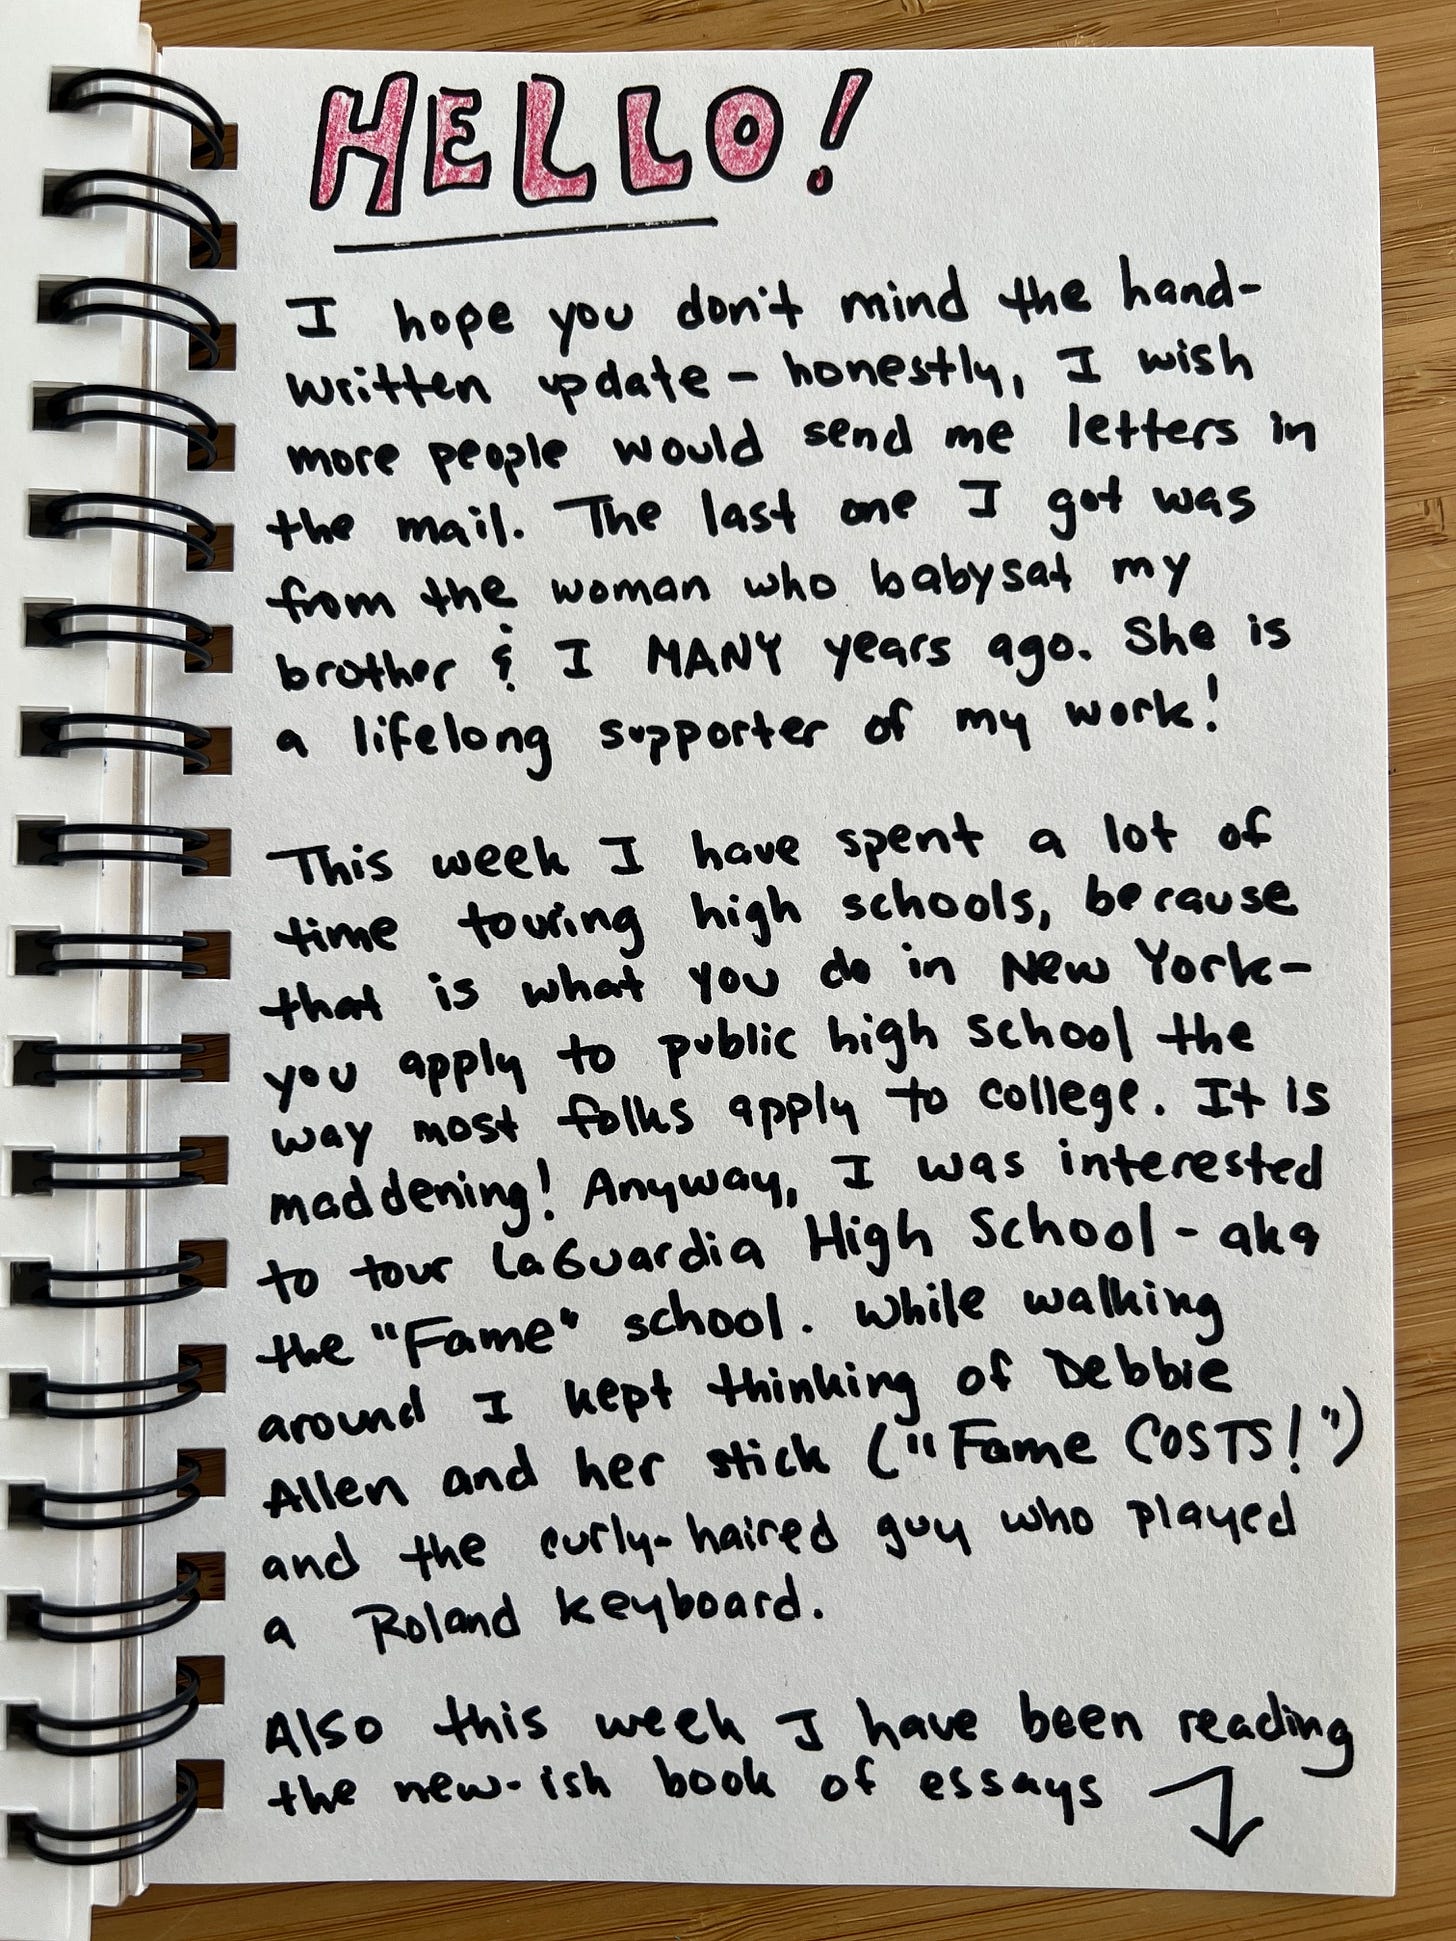 HELLO!
I hope you don't mind the hand-
written update - honestly, I wish
more people would send me letters in
the mail. The last one I got was
from the woman who babysat my
brother & I MANY years ago. She is
a lifelong supporter of my work!
This week I have spent a lot of
time touring high schools, because
that is what you do in New York-
you apply to public high school the
way most folks apply to college. It is
maddening! Anyway, I was interested
to tour LaGuardia High School - aka
the "Fame" school. While walking
around I kept thinking of Debbie
Allen and her stick ("Fame COSTS!")
and the curly-haired guy who played
a Roland keyboard.
Also this week I have been reading
the new-ish book of essays